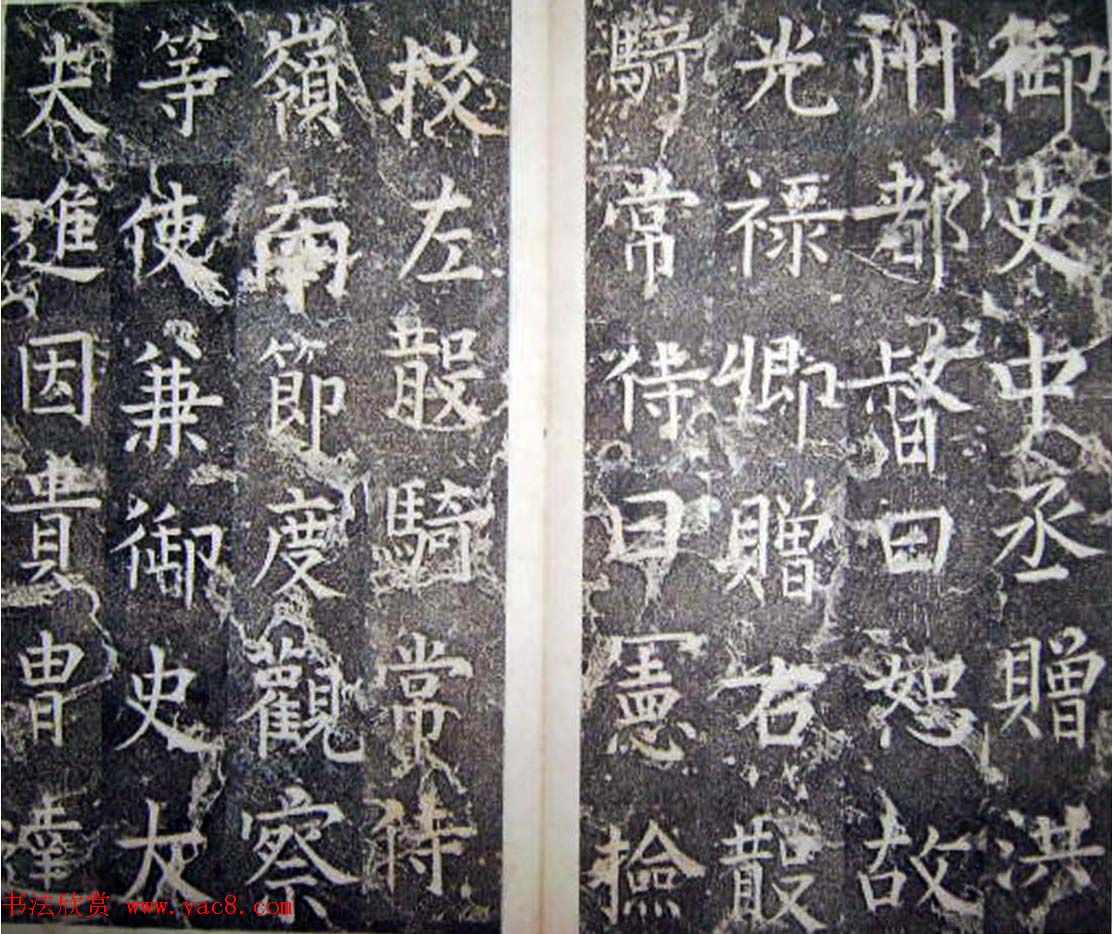 御史中丞贈洪
州都督曰恕故
光祿卿贈右散
騎常侍曰憲撿
挍左散騎常侍
嶺南節度觀察
等使兼御史大
夫進因貴曺達
书法欣赏 www.yac8.com